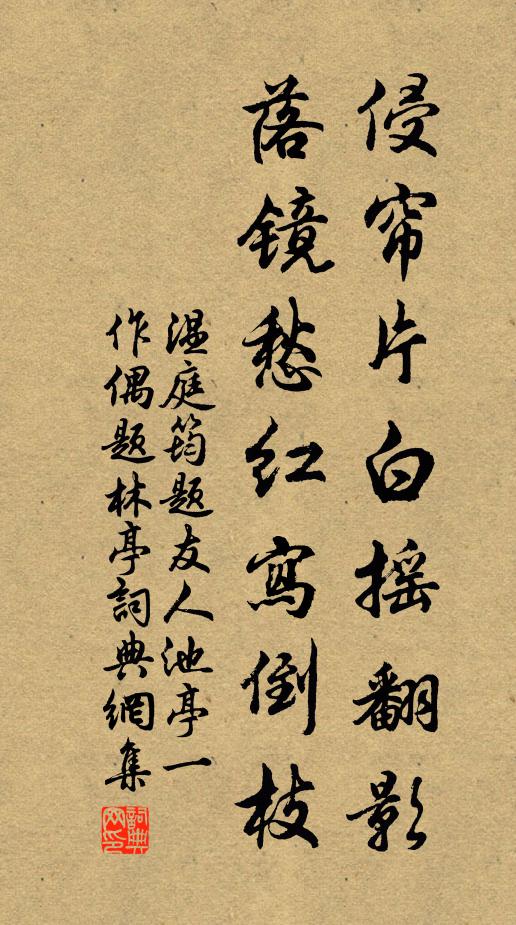 侵帘片白摇翻影
落镜愁红寫倒枝
温庭筠题友人池亭一
作偶题林亭詞典網集
詞典网印